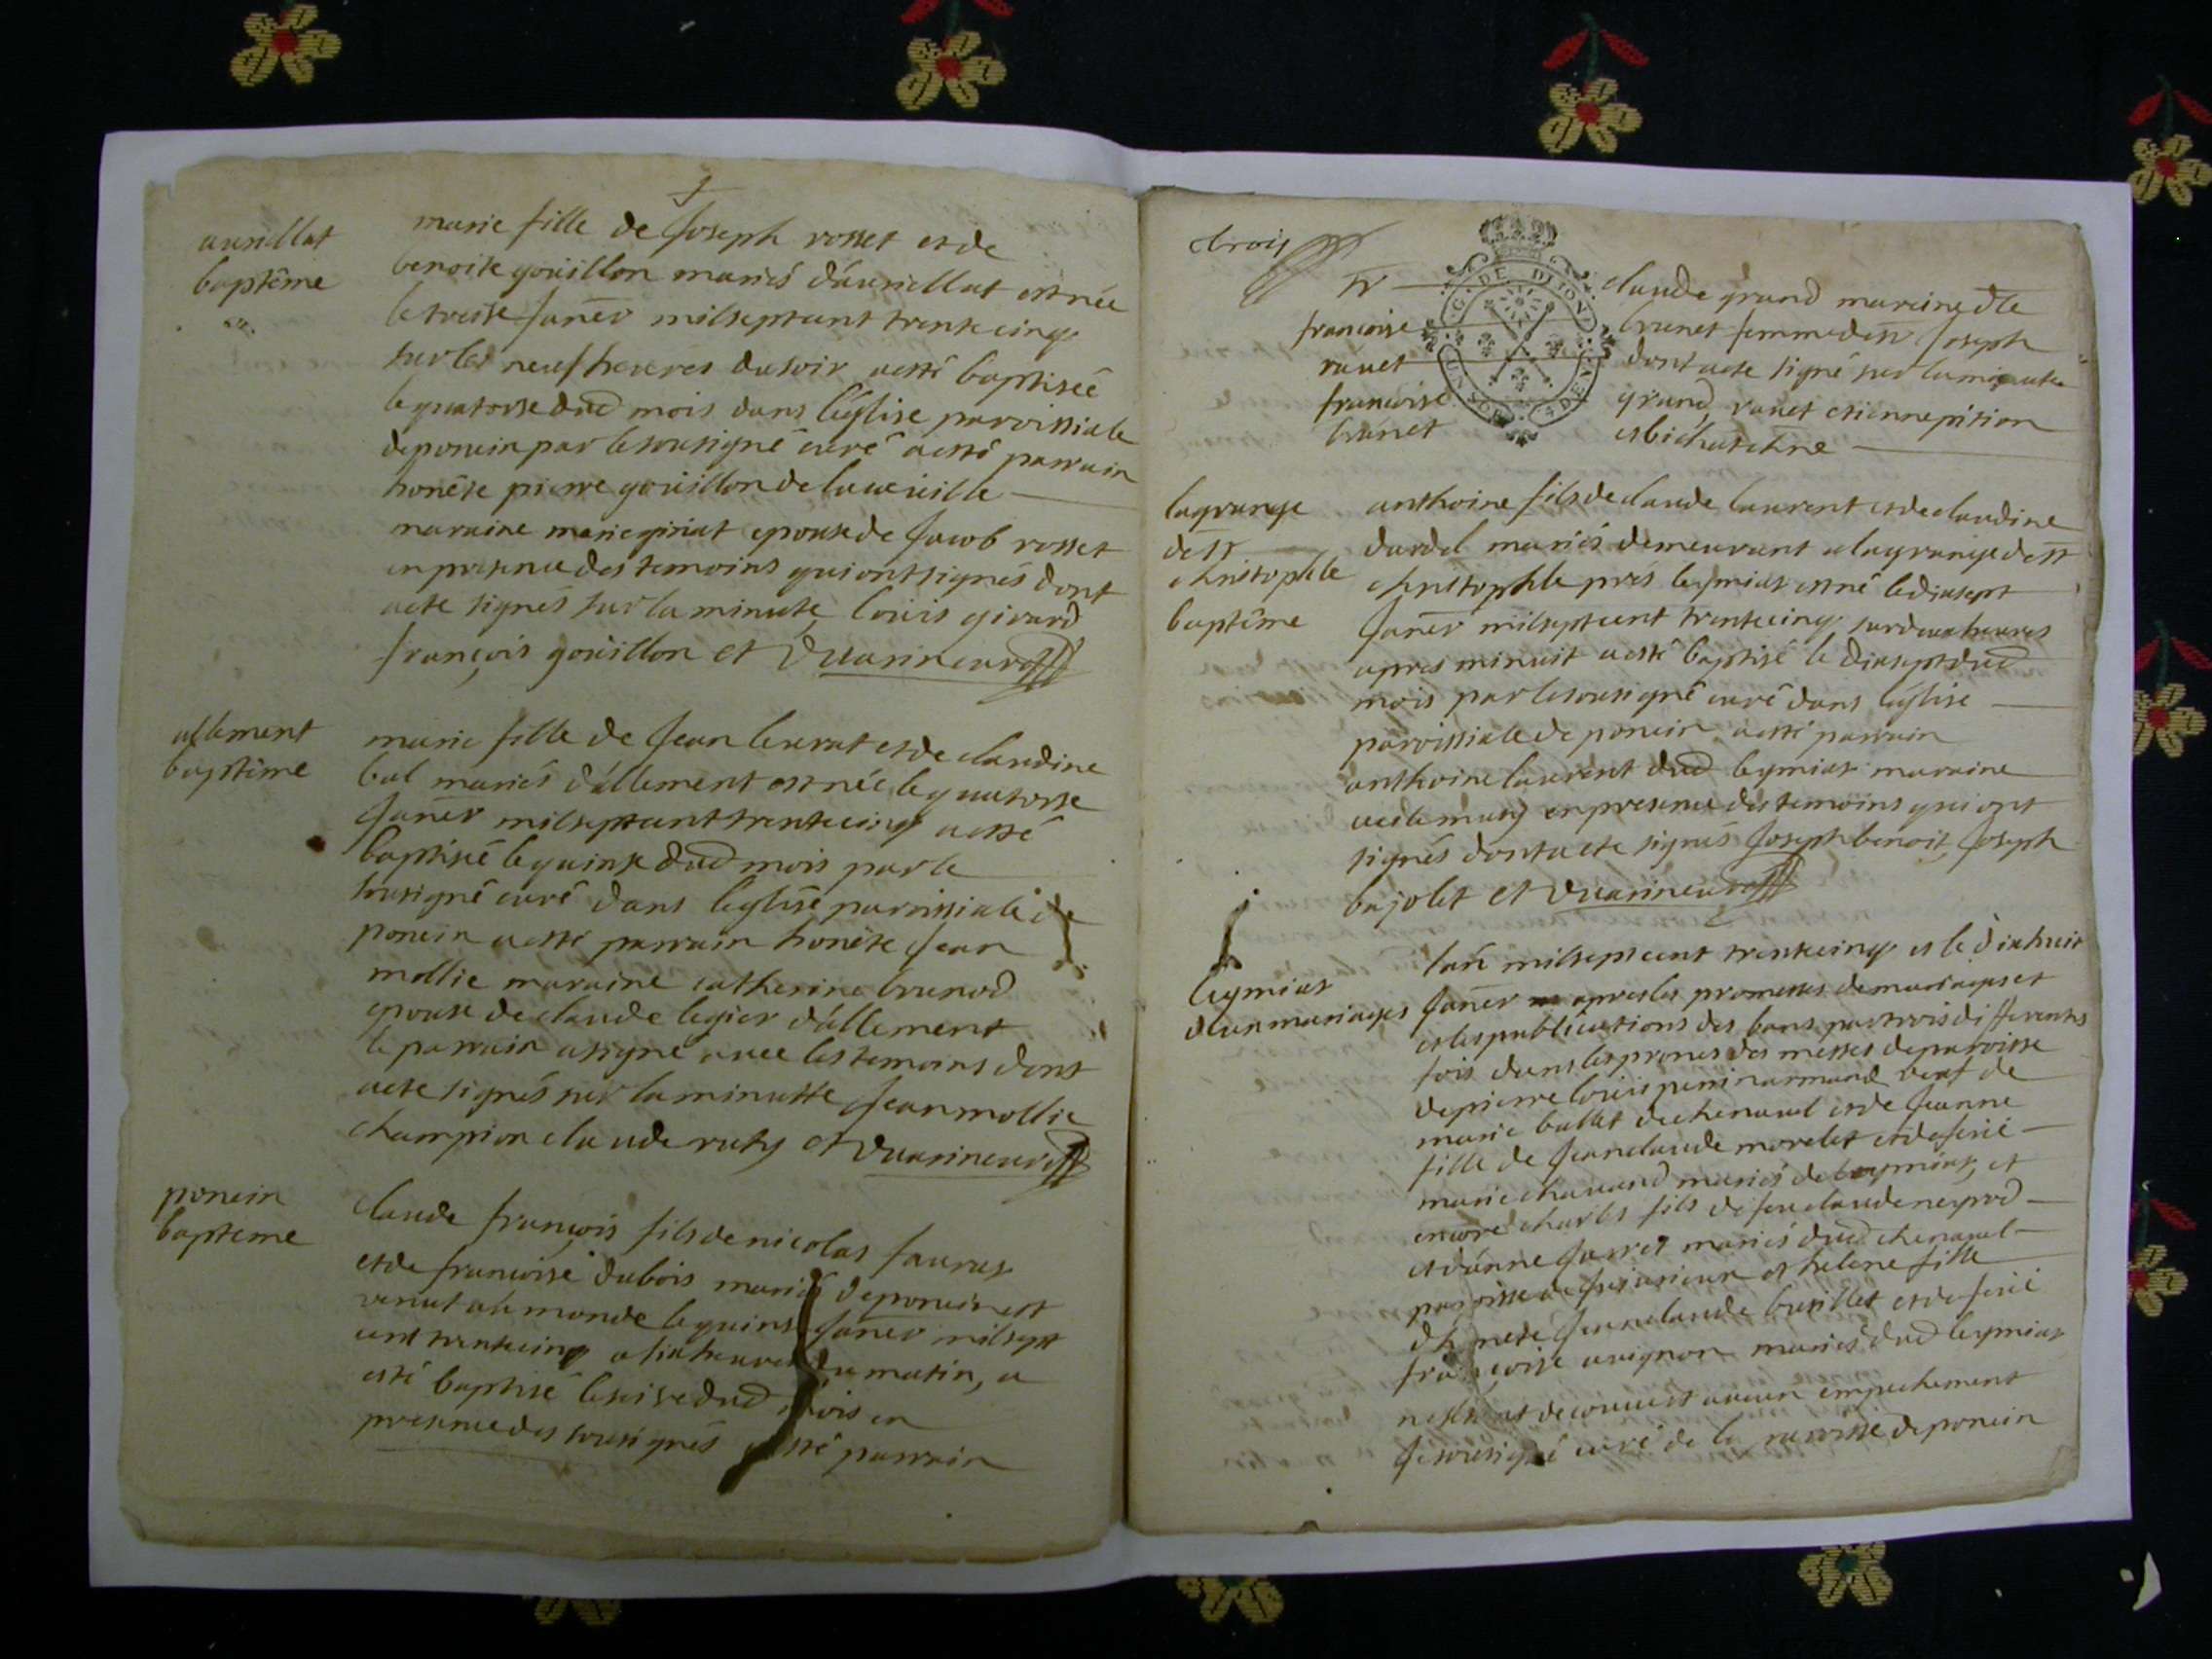 aurillat
baptême
marie fille de Joseph rosset et de
benoite goüillon mariés d'aurillat est née
le treise Janër milseptcent trente cinq
sur les neuf heures du soir a esté baptisée
le quatorse dud mois dans l'église paroissiale
de poncin par le sousigné curé a esté parrain
honête pierre goüillon de la
maraine marie giriat epouse de Jacob rosset
en presence des temoins qui ont signés dont
acte signés sur la minute, louis girard
françois goüillon et
allement
baptême
marie fille de Jean leurat et de claudine
bal mariés d'allement est née le quatorse
Janër milseptcent trente cinq a esté
baptisée le quinse dud mois par le
sousigné curé dans l'église paroissiale de
poncin a esté parrain honête Jean
mollie maraine catherine brunod
epouse de claude legier d'allement
le parrain a signé avec les temoins dont
acte signés sur la minutte Jean mollie
champion claude ruty et
poncin
bapteme
claude françois fils de nicolas
et de francoise dubois mariés de poncin est
venut au monde le quinse Janër milsept
cent trente cinq a six heures du matin, a
esté baptisé le seise dud mois en
presence des sousignés a esté parrain
trois
G. DE DIJON
claude grand maraine dle
francoise
brunet femme de sr Joseph
ravet
dont acte signé sur la minute
francoise
grand, ravet etienne pition
brunet
lagrange
de st
christophle
baptême
anthoine fils de claude laurent et de claudine
dardel mariés demeurant a la grange de st
christophle prés leymiat est né le dixsept
Janër milseptcent trente cinq sur deux heures
apres minuit a esté baptisé le dixsept dud
mois par le sousigné curé dans l'église
paroissiale de poncin a esté parrain
anthoine laurent dud leymiat maraine
en presence des temoins qui ont
signés dont acte signés Joseph benoit, Joseph
bajolet et
leymiat
deux mariages
lan milseptcent trente cinq et le dixhuit
Janër apres les promesses de mariages et
et les publications des bans par trois differentes
fois dans les prones des messes de paroisse
de pierre loüis perrin armand veuf de
marie ballet de chenaval et de Jeanne
fille de Jean claude morelet et de
marie chavand mariés de leymiat, et
encore charles fils de feu claude neyrod
et d'anne Jarret mariés dud chenaval
paroisse de Jujurieux et helene fille
d'honete Jean claude brusillet et de
françoise avignon mariés dud leymiat
decouvert aucun empechement
Je sousigné curé de la paroisse de poncin